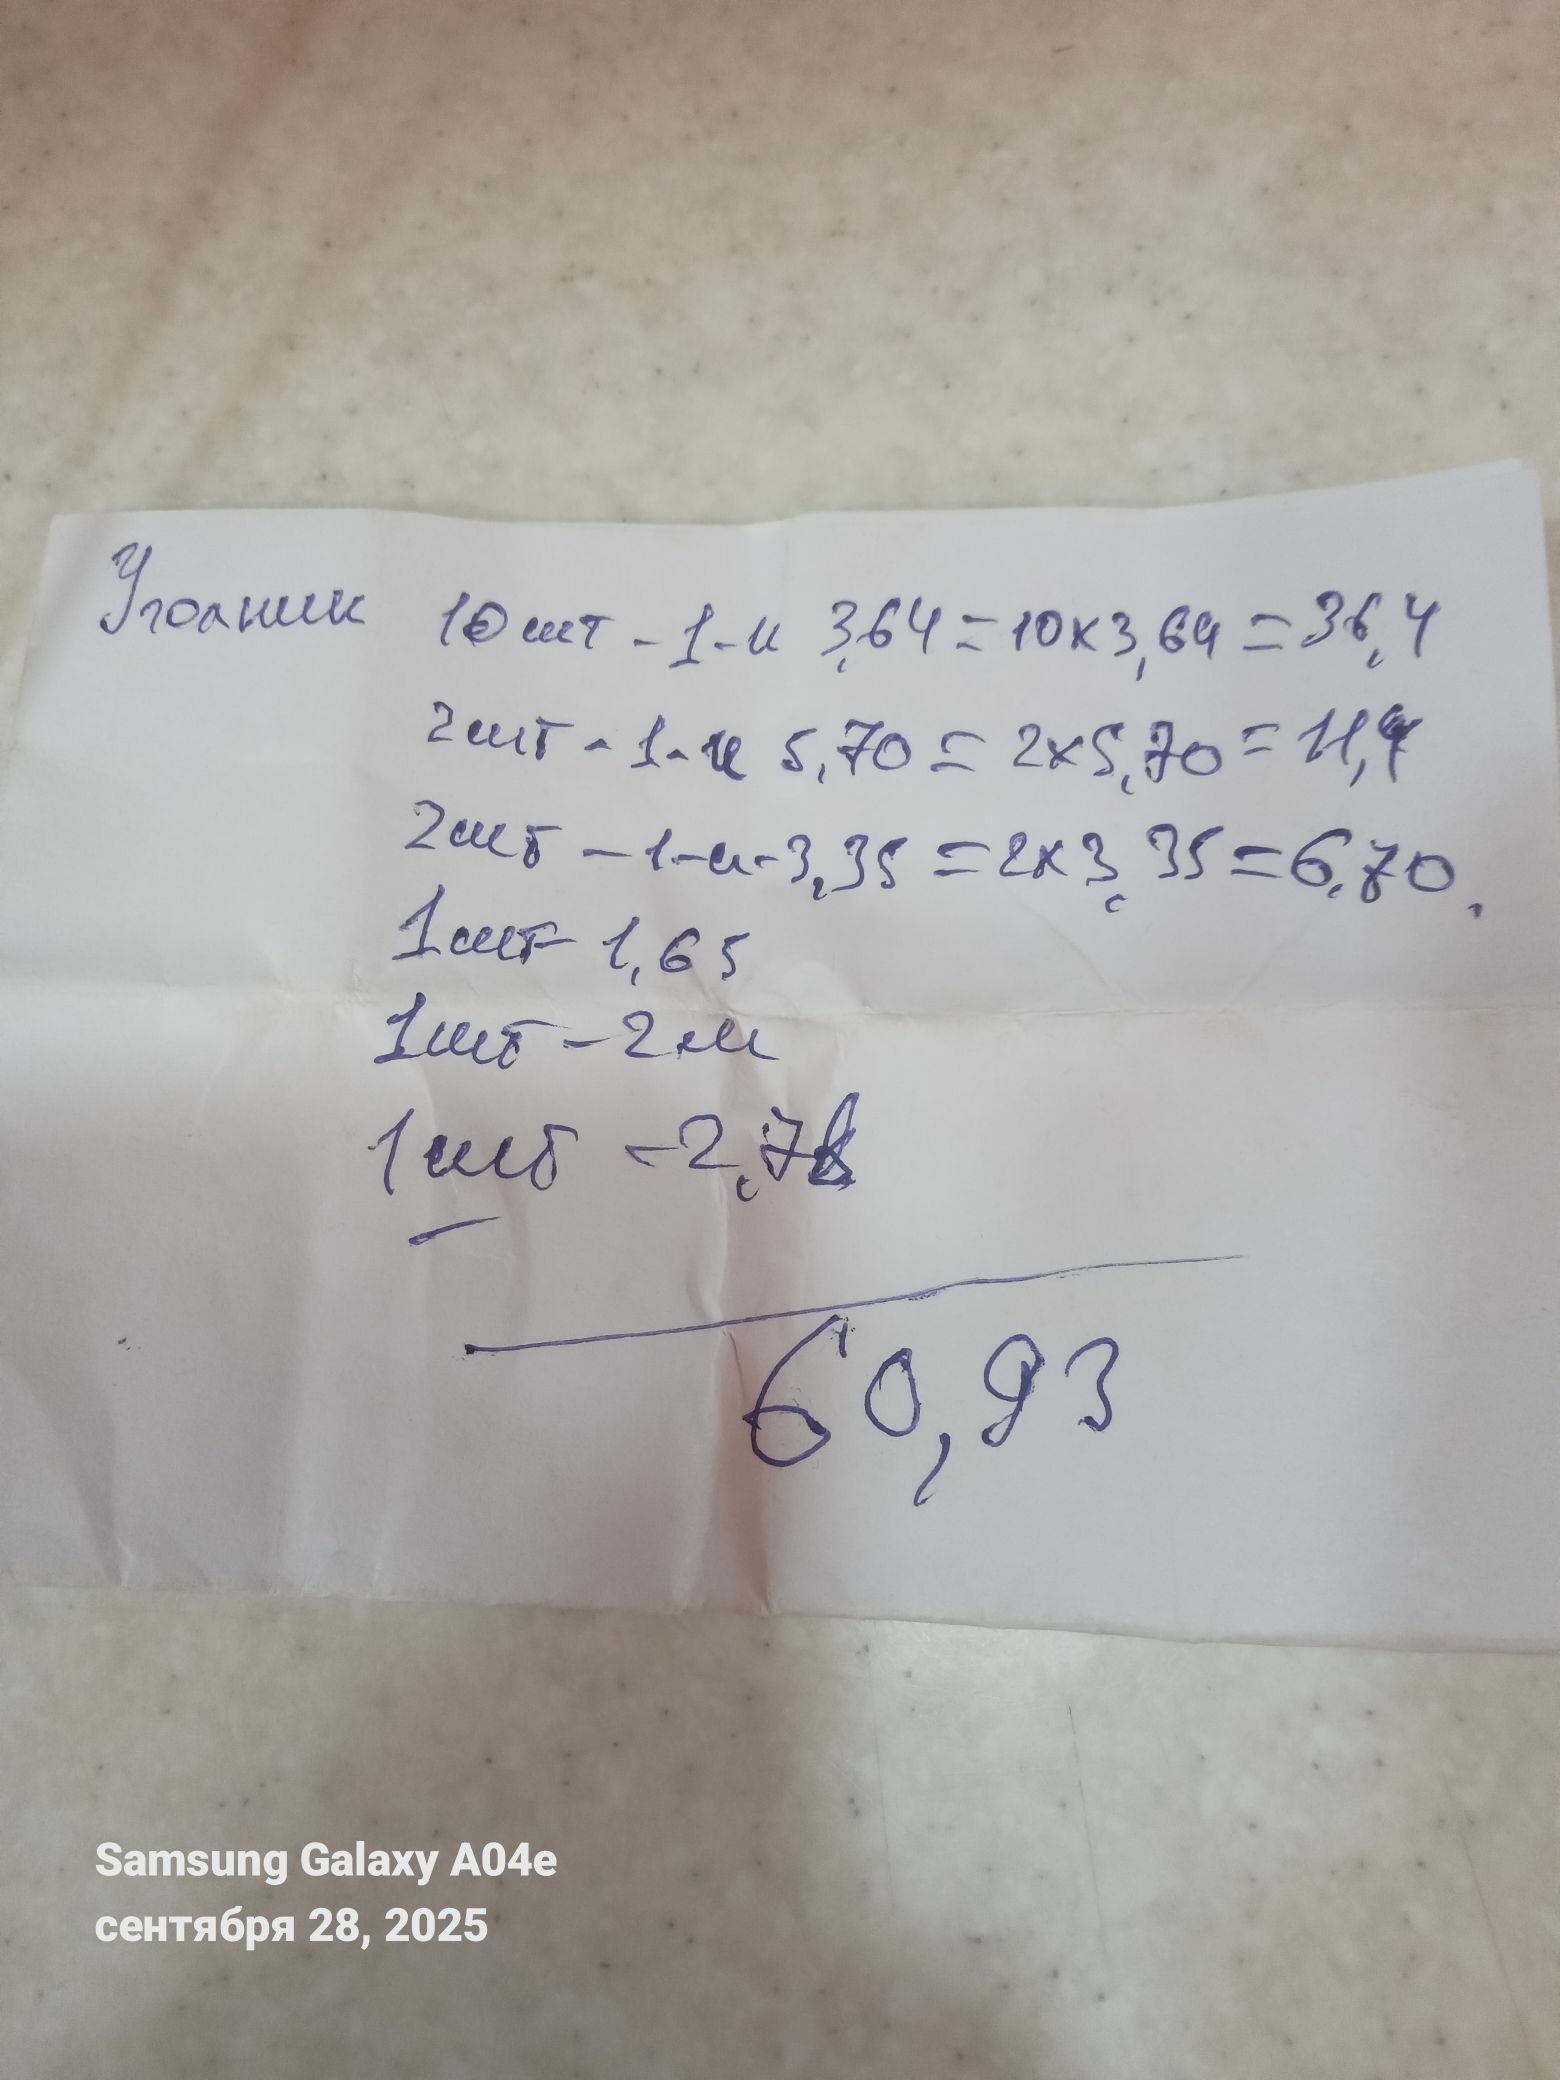 Уголник 10шт - 1-и 3,64 = 10х3,64 = 36,4
2шт - 1-и 5,70 = 2х5,70 = 11,4
2шт - 1-и - 3,35 = 2х3,35 = 6,70.
1шт - 1,65
1шт - 2м
1шт - 2,78
60,93
Samsung Galaxy A04e
сентября 28, 2025